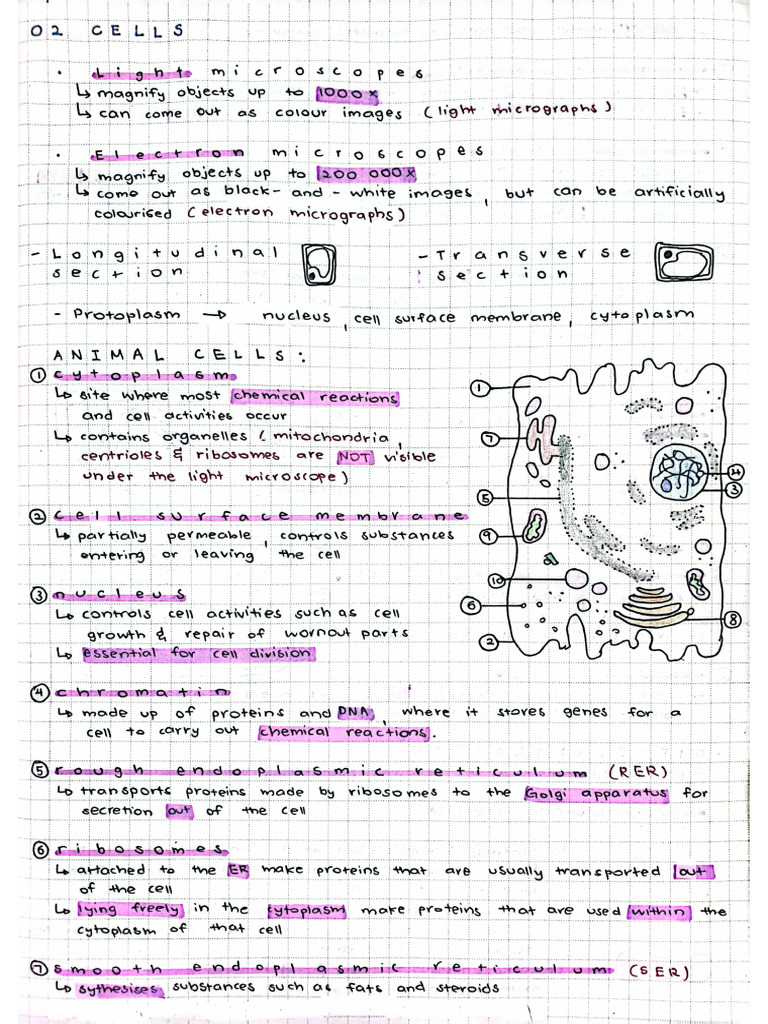 02 CELLS
· Light microscopes
↳ magnify objects up to 1000x
↳ can come out as colour images (light micrographs)
· Electron microscopes
↳ magnify objects up to 200 000x
↳ come out as black-and-white images, but can be artificially
colourised (electron micrographs)
- Longitudinal
section
- Transverse
section
- Protoplasm → nucleus, cell surface membrane, cytoplasm
ANIMAL CELLS:
① cytoplasm
↳ site where most chemical reactions
and cell activities occur
↳ contains organelles (mitochondria,
centrioles & ribosomes are NOT visible
under the light microscope)
② cell surface membrane
↳ partially permeable, controls substances
entering or leaving the cell
③ nucleus
↳ controls cell activities such as cell
growth & repair of wornout parts
↳ essential for cell division
1
7
4
3
5
9
10
6
8
2
④ chromatin
↳ made up of proteins and DNA, where it stores genes for a
cell to carry out chemical reactions.
⑤ rough endoplasmic reticulum (RER)
↳ transports proteins made by ribosomes to the Golgi apparatus for
secretion out of the cell
⑥ ribosomes
↳ attached to the ER make proteins that are usually transported out
of the cell
↳ lying freely in the cytoplasm make proteins that are used within the
cytoplasm of that cell
⑦ smooth endoplasmic reticulum (SER)
↳ sythesises substances such as fats and steroids